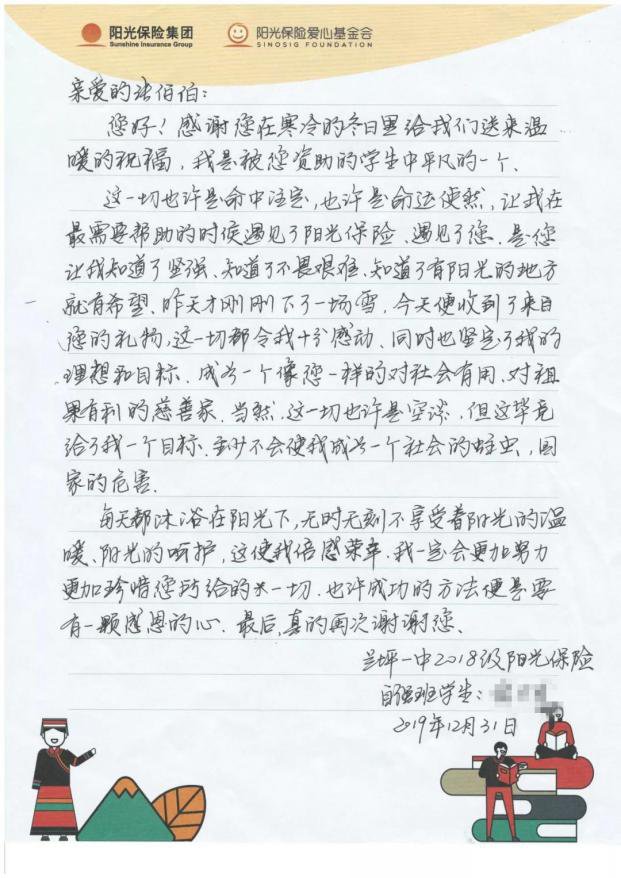 阳光保险集团 阳光保险爱心基金会
Sunshine Insurance Group SINOSIG FOUNDATION
亲爱的张伯伯：
您好！感谢您在寒冷的冬日里给我们送来温
暖的祝福，我是被您资助的学生中平凡的一个、
这一切也许是命中注定，也许是命运使然，让我在
最需要帮助的时候遇见了阳光保险、遇见了您、是您
让我知道了坚强、知道了不畏艰难、知道了有阳光的地方
就有希望、昨天才刚刚下了一场雪，今天便收到了来自
您的礼物，这一切都令我十分感动、同时也坚定了我的
理想和目标、成为一个像您一样的对社会有用、对祖
果有利的慈善家、当然，这一切也许是空谈、但这毕竟
给了我一个目标、至少不会使我成为一个社会的蛀虫，国
家的危害、
每天都沐浴在阳光下，无时无刻不享受着阳光的温
暖、阳光的呵护，这使我倍感荣幸、我一定会更加努力
更加珍惜您所给的一切、也许成功的方法便是要
有一颗感恩的心、最后，真的再次谢谢您、
兰坪一中2018级阳光保险
自强班学生：
2019年12月31日